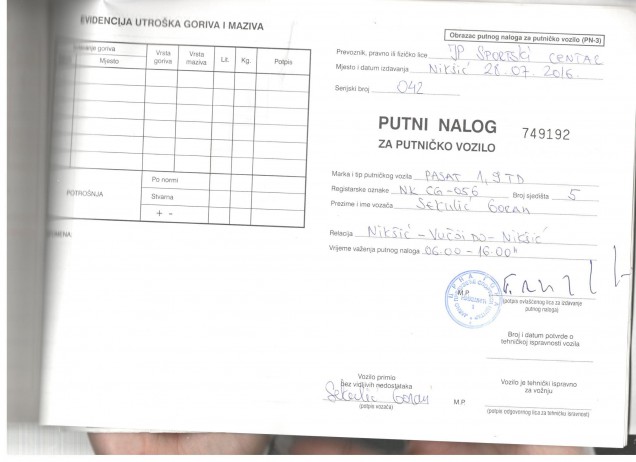 EVIDENCIJA UTROŠKA GORIVA I MAZIVA
goriva
Mjesto
Vrsta goriva
Vrsta maziva
Lit.
Kg.
Potpis
POTROŠNJA
Po normi
Stvarna
+ -
Obrazac putnog naloga za putničko vozilo (PN-3)
Prevoznik, pravno ili fizičko lice JP SPORTSKI CENTAR
Mjesto i datum izdavanja Nikšić 28.07.2016.
Serijski broj 042
PUTNI NALOG 749192
ZA PUTNIČKO VOZILO
Marka i tip putničkog vozila PASAT 1,9 TD
Registarske oznake NK CG-056 Broj sjedišta 5
Prezime i ime vozača Sekulić Goran
Relacija Nikšić - Vučji Do - Nikšić
Vrijeme važenja putnog naloga 06.00 - 16.00h
M.P.
(potpis ovlašćenog lica za izdavanje
putnog naloga)
Broj i datum potvrde o
tehničkoj ispravnosti vozila
Vozilo primio
bez vidljivih nedostataka
Sekulić Goran
(potpis vozača)
M.P.
Vozilo je tehnički ispravno
za vožnju
(potpis odgovornog lica za tehničku ispravnost)